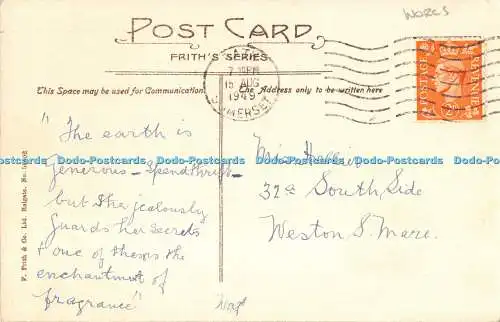 WORCS
POST CARD
FRITH'S SERIES
7 PM
15 AUG
1949
SOMERSET
POSTAGE
REVENUE
This Space may be used for Communication.
The Address only to be written here
"The earth is
generous - spendthrift -
but she jealously
guards her secrets
& one of them is the
enchantment of
fragrance"
Miss
32a South Side
Weston S. Mare.
F. Frith & Co. Ltd. Reigate.
Dodo-Postcards Dodo-Postcards Dodo-Postcards Dodo-Postcards Dodo-Postcards Dodo-Postcards